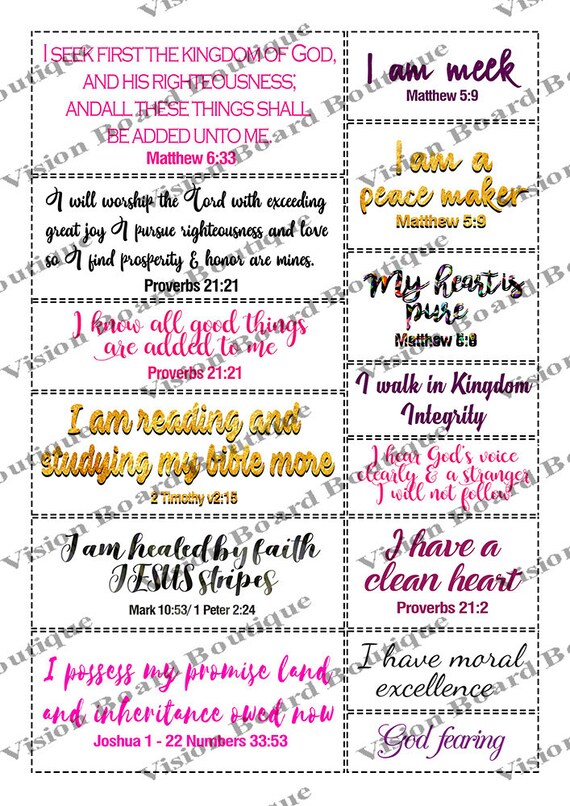 I SEEK FIRST THE KINGDOM OF GOD,
AND HIS RIGHTEOUSNESS;
ANDALL THESE THINGS SHALL
BE ADDED UNTO ME.
Matthew 6:33
I will worship the Lord with exceeding
great joy I pursue righteousness and love
so I find prosperity & honor are mines.
Proverbs 21:21
I know all good things
are added to me
Proverbs 21:21
I am reading and
studying my bible more
2 Timothy v2:15
I am healed by faith
JESUS stripes
Mark 10:53/ 1 Peter 2:24
I possess my promise land
and inheritance owed now
Joshua 1 - 22 Numbers 33:53
I am meek
Matthew 5:9
I am a
peace maker
Matthew 5:9
My heart is
pure
Matthew 5:8
I walk in Kingdom
Integrity
I hear God's voice
clearly & a stranger
I will not follow
I have a
clean heart
Proverbs 21:2
I have moral
excellence
God fearing
Vision Board Boutique